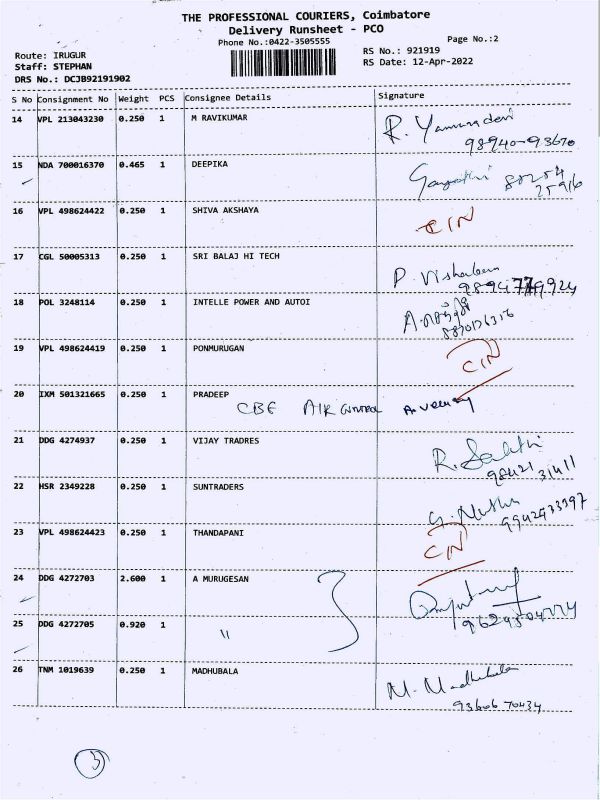 THE PROFESSIONAL COURIERS, Coimbatore
Delivery Runsheet - PCO
Phone No.:0422-3505555 Page No.:2
Route: IRUGUR RS No.: 921919
Staff: STEPHAN RS Date: 12-Apr-2022
DRS No.: DCJB92191902
S No Consignment No Weight PCS Consignee Details Signature
14 VPL 213043230 0.250 1 M RAVIKUMAR R. Yamunadevi
98940-93670
15 NDA 700016370 0.465 1 DEEPIKA Gayathri 88254
25916
16 VPL 498624422 0.250 1 SHIVA AKSHAYA CIN
17 CGL 50005313 0.250 1 SRI BALAJ HI TECH P.
18 POL 3248114 0.250 1 INTELLE POWER AND AUTOI
19 VPL 498624419 0.250 1 PONMURUGAN CIN
20 IXM 501321665 0.250 1 PRADEEP
CBE AIR CONTROL
21 DDG 4274937 0.250 1 VIJAY TRADRES R. Sakthi
98421 31411
22 HSR 2349228 0.250 1 SUNTRADERS G. Muthu
9942973397
23 VPL 498624423 0.250 1 THANDAPANI CIN
24 DDG 4272703 2.600 1 A MURUGESAN
25 DDG 4272705 0.920 1 "
26 TNM 1019639 0.250 1 MADHUBALA M. Madhubala
93606 70434
3